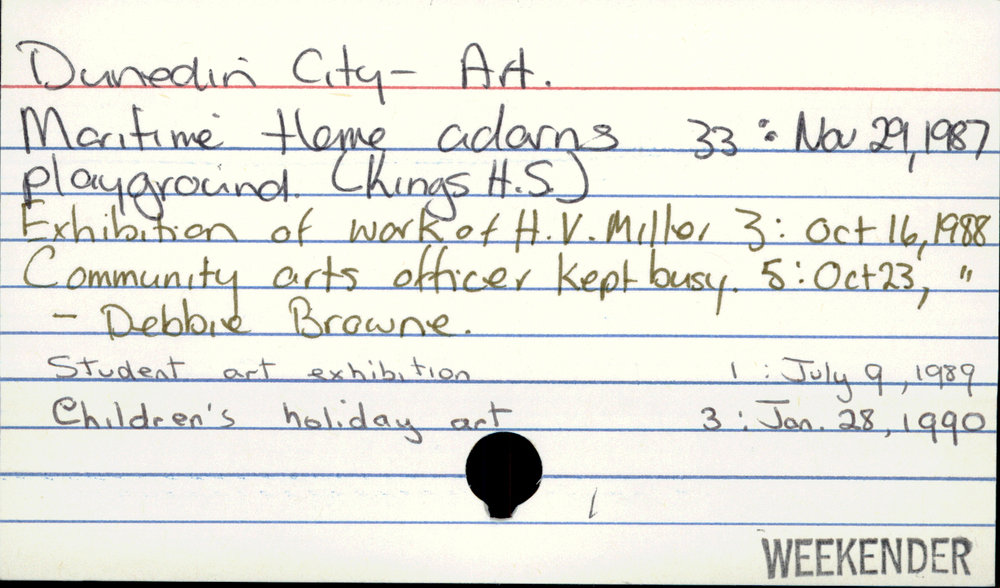 Dunedin City - Art.
Maritime theme adorns 33 : Nov 29, 1987
playground. (Kings H.S.)
Exhibition of work of H.V. Miller 3 : Oct 16, 1988
Community arts officer kept busy. 5 : Oct 23, "
- Debbie Browne.
Student art exhibition 1 : July 9, 1989
Children's holiday art 3 : Jan. 28, 1990
WEEKENDER